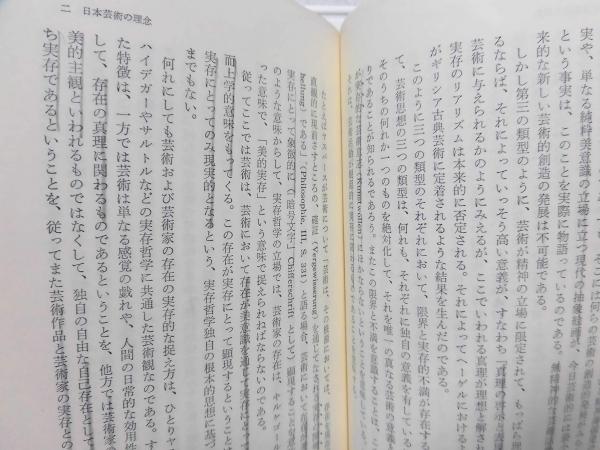 実や、単なる純粋美意識の立場に立つ現代の抽象絵画が、
という事実は、このことを実際に物語っているのである。
来的な新しい芸術的創造の発展は不可能である。
しかし第三の類型のように、芸術が精神の立場に限定されて、もっぱら理
芸術に与えられるかのようにみえるが、ここでいわれる真理が理想と解され
るならば、それによっていっそう高い意義が、すなわち「真理の啓示と表現
実存のリアリズムは本来的に否定される。それによってヘーゲルにおけるよ
がギリシア古典芸術に定着されるような結果を生んだのである。
このように三つの類型のそれぞれにおいて、限界と実存的不満が存在する
て、芸術思想の三つの類型は、何れも、それぞれに独自の意義を有している
そのうちの何れか一つのものを絶対化して、それを唯一の真なる芸術の意義
りであることが知られるであろう。またこの限界と不満を意識することは、こ
二 日本芸術の理念
たとえばヤスパースが芸術について「芸術は、その
直観的に現前さすところの、確証（Vergewisserung）を通して
heitung）である」（Philosophie, III, S. 331）と語る場合、芸術において存在が
実存にとって象徴的に（「暗号文字」Chifferschrift として）顕現すること
のような意味からして、実存哲学の立場では、芸術家の存在は、キルケゴール
った意味で、「美的実存」という意味で捉えられねばならないのである。
従ってここでは芸術は、芸術において存在が美意識を通して実存にとって
而上学的意味をもってくる。この存在が実存にとって顕現するということは
実存にとってのみ現実的となるという、実存哲学独自の根本的思想に基づ
までもない。
何れにしても芸術および芸術家の存在の実存的な捉え方は、ひとりヤ
ハイデガーやサルトルなどの実存哲学に共通した芸術観なのである。す
た特徴は、一方では芸術は単なる感覚の戯れや、人間の日常的な効用性
して、存在の真理に関わるものであるということを、他方では芸術家の
美的主観といわれるものではなくして、独自の自由な自己存在として
ち実存であるということを、従ってまた芸術作品と芸術家の実存との